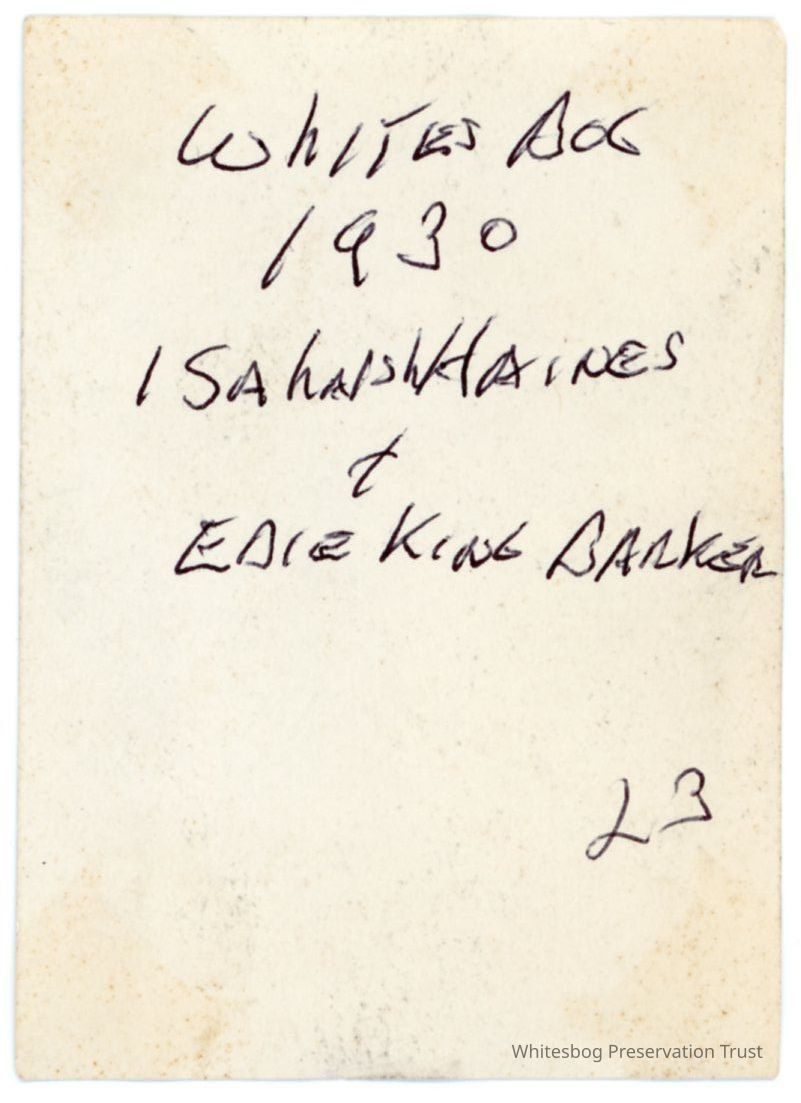 WhITES BOG
1930
ISAhAISh HAINES
+
EDIE KING BARKER
L3
Whitesbog Preservation Trust